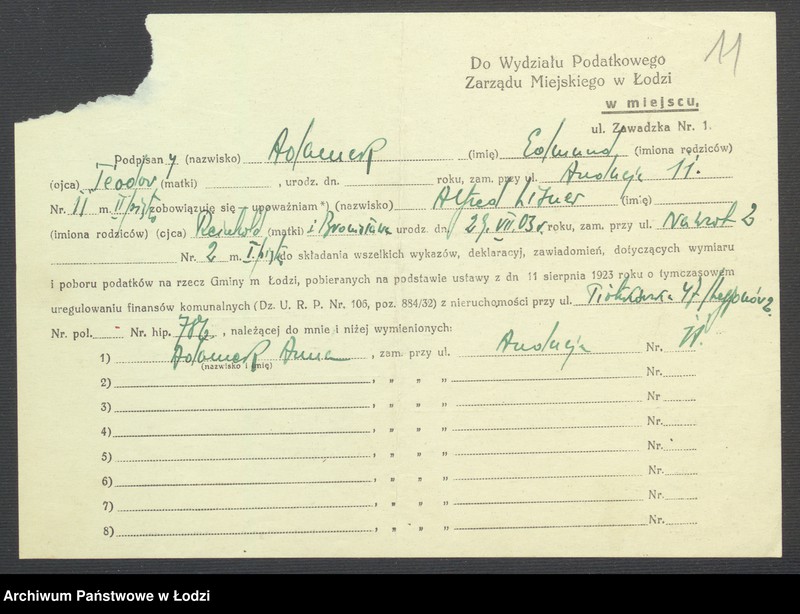 11
Do Wydziału Podatkowego
Zarządu Miejskiego w Łodzi
w miejscu,
ul. Zawadzka Nr. 1.
Podpisany (nazwisko) Adamek (imię) Edmund (imiona rodziców)
(ojca) Teodor (matki) urodz. dn. roku, zam. przy ul. Andrzeja 11.
Nr. 11 m. II piętro zobowiązuję się - upoważniam *) (nazwisko) Alfred (imię)
(imiona rodziców) (ojca) Reinhold (matki) i Bronisława urodz. dn. 29.VII.03 r. roku, zam. przy ul. Nawrot 2
Nr. 2 m. I. piętro do składania wszelkich wykazów, deklaracyj, zawiadomień, dotyczących wymiaru
i poboru podatków na rzecz Gminy m Łodzi, pobieranych na podstawie ustawy z dn 11 sierpnia 1923 roku o tymczasowym
uregulowaniu finansów komunalnych (Dz. U. R. P. Nr. 106, poz. 884/32) z nieruchomości przy ul. Piotrkowska 47/Legjonów 2
Nr. pol. Nr. hip. , należącej do mnie i niżej wymienionych:
1) Adamek Anna , zam. przy ul. Andrzeja Nr. 11.
(nazwisko i imię)
2) , „ „ „ Nr.
3) , „ „ „ Nr
4) , „ „ „ Nr.
5) , „ „ „ Nr.
6) , „ „ „ Nr.
7) , „ „ „ Nr.
8) , „ „ „ Nr.
Archiwum Państwowe w Łodzi